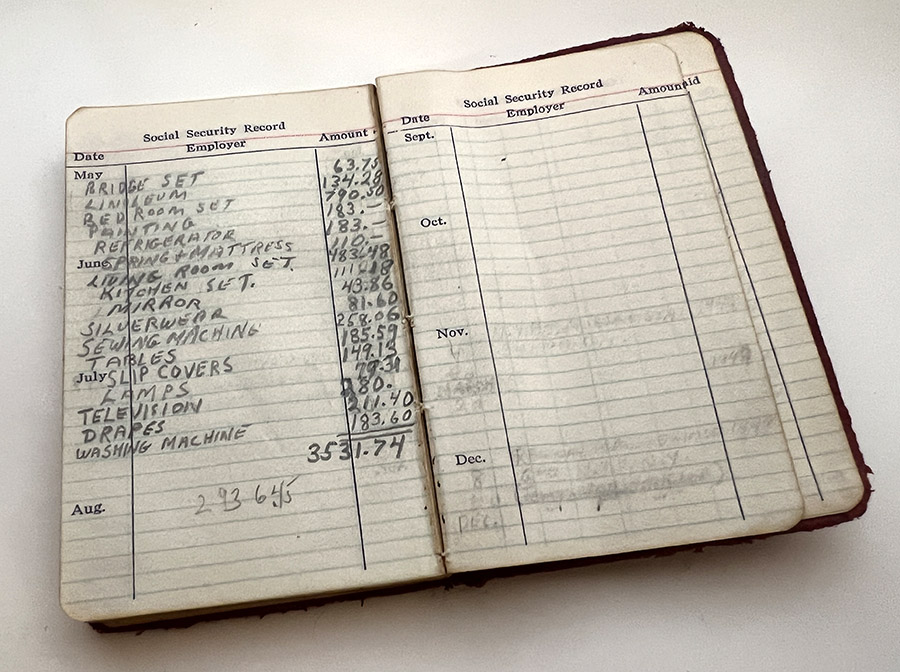 Social Security Record
Date Employer Amount
May BRIDGE SET 63.75
LINOLEUM 134.28
BEDROOM SET 790.50
PAINTING 183.—
REFRIGERATOR 183.—
June SPRING + MATTRESS 110.—
LIVING ROOM SET. 483.48
KITCHEN SET. 111.18
MIRROR 43.86
SILVERWEAR 81.60
SEWING MACHINE 258.06
TABLES 185.59
July SLIP COVERS 149.13
LAMPS 79.31
TELEVISION 280.
DRAPES 211.40
WASHING MACHINE 183.60
3531.74
Aug. 293645
Social Security Record
Date Employer Amount
Sept.
Oct.
Nov.
Dec.
DEC.
id